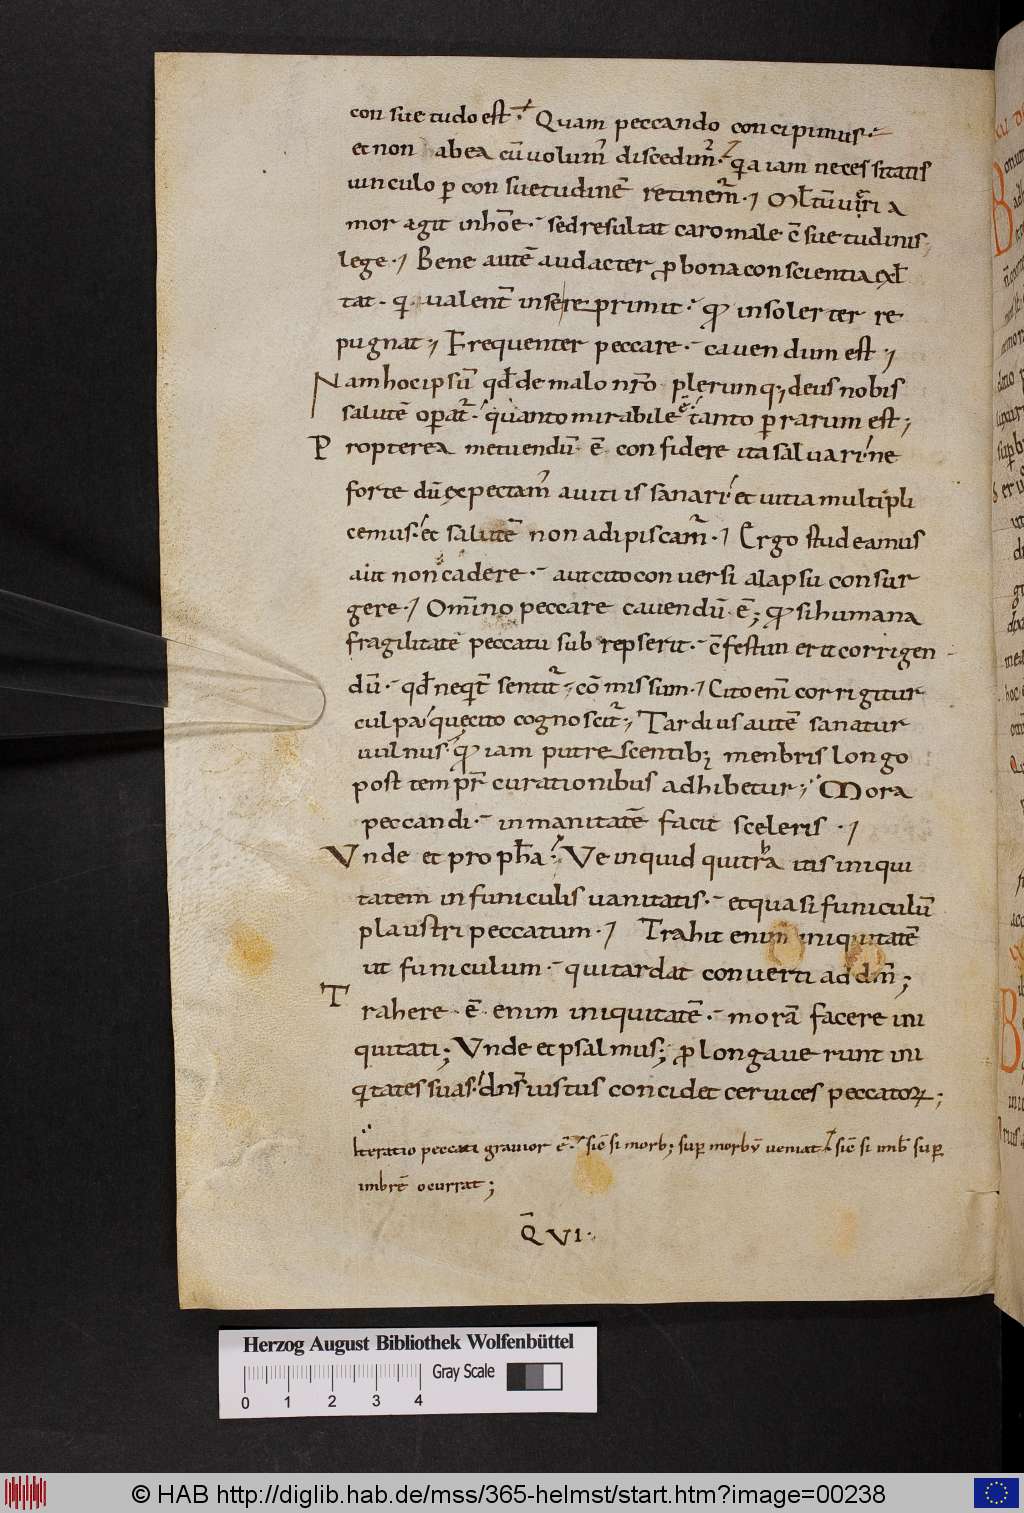 consuetudo est. Quam peccando concipimus.
et non ab ea cū uolum̄ discedim̄. qa iam necessitatis
uinculo p consuetudinē retinem̄.
mor agit in hōe. sed resultat caro male ꝯsuetudinis
lege. Bene autē audacter ꝓ bona conscientia
tat. q ualent̄ in se reprimit. insolerter re
pugnat; Frequenter peccare. cauendum est;
Nam hoc ipsū qd̄ de malo nr̄o plerumq; deus nobis
salutē opat̄. quanto mirabile ē. tanto prarum est;
Propterea metuendū ē confidere ita saluari ne
forte dū expectam̄ a uitiis sanari et uitia multipli
cemus. et salutē non adipiscam̄. Ergo studeamus
aut non cadere. aut cito conuersi a lapsu consur
gere. Om̄ino peccare cauendū ē; si humana
fragilitatē peccatū subrepserit. ꝯfestim erit corrigen
dū. qd̄ neqt̄ sentit̄ cōmissum. Cito enī corrigitur
culpa quę cito cognoscit̄; Tardius autē sanatur
uulnus iam putrescentib; menbris longo
post tempr̄ curationibus adhibetur; Mora
peccandi. inmanitatē facit sceleris.
Vnde et propha. Ve inquid qui trahitis iniqui
tatem in funiculis uanitatis. et quasi funiculū
plaustri peccatum. Trahit enim iniquitatē
ut funiculum. qui tardat conuerti ad dm̄;
Trahere ē enim iniquitatē. morā facere ini
quitati; Vnde et psalmus; ꝓlongauerunt ini
qitates suas. dns̄ iustus concidet ceruices peccatoꝝ;
Iteratio peccati grauior ē. sic̄ si morb; sup morbū ueniat. sic̄ si imb̄ sup
imbrē ocurrat;
Q̄ VI.
Herzog August Bibliothek Wolfenbüttel
Gray Scale
0 1 2 3 4
© HAB http://diglib.hab.de/mss/365-helmst/start.htm?image=00238